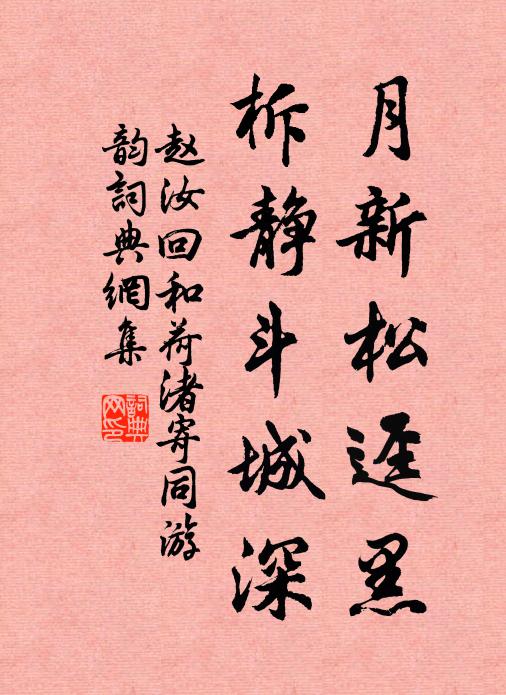 月新松迳黑
柝静斗城深
赵汝回和荷渚寄同游
韵詞典網集
詞典
网印